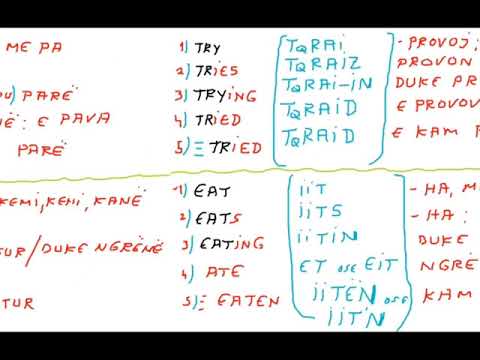 ME PA 1) TRY TQRAi - PROVOJ:
2) TRiES TQRAiZ PROVON
) PARË 3) TRYiNG TQRAi-iN DUKE PR
Ë: E PAVA 4) TRiED TQRAiD E PROVOV
PARË 5) Ξ TRiED TQRAiD E KAM P
KEMi, KENi, KANË -1) EAT iiT - HA, M
2) EATS iiTS - HA:
TUR/DUKE NGRËNË 3) EATiNG iiTiN DUKE
4) ATE ET OSE EiT NGRË
TUR 5) Ξ EATEN iiTËN OSE KAM
iiT'N